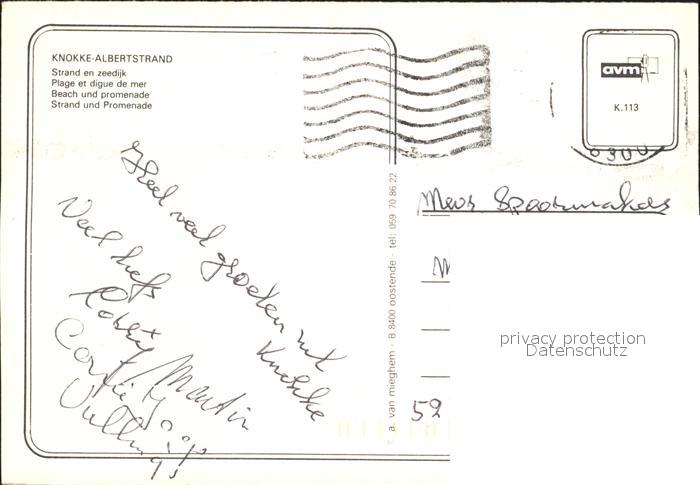 KNOKKE-ALBERTSTRAND
Strand en zeedijk
Plage et digue de mer
Beach und promenade
Strand und Promenade
avm
K.113
Heel veel groeten uit
Knokke
Veel liefs
Martin
Corrie
Joop
Vullings
a. van mieghem - B.8400 oostende - tel: 059 70.86.22
Mevr
M
59
privacy protection
Datenschutz